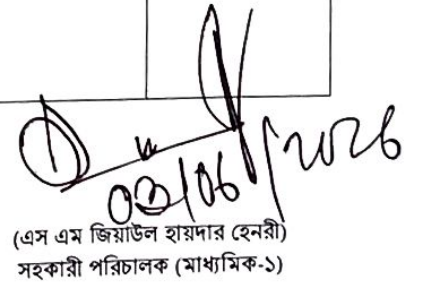 03/06/2026
(এস এম জিয়াউল হায়দার হেনরী)
সহকারী পরিচালক (মাধ্যমিক-১)